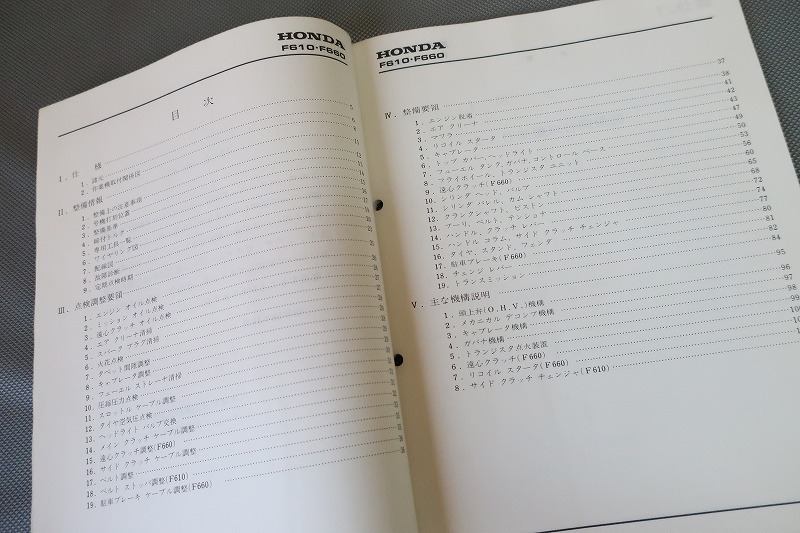 HONDA
F610・F660
目 次
Ⅰ. 仕 様
1. 諸元
2. 作業機取付関係図
Ⅱ. 整備情報
1. 整備上の注意事項
2. 号機打刻位置
3. 整備基準
4. 締付トルク
5. 専用工具一覧
6. ワイヤリング図
7. 配線図
8. 故障診断
9. 定期点検時期
Ⅲ. 点検調整要領
1. エンジン オイル点検
2. ミッション オイル点検
3. 遠心クラッチ オイル点検
4. エア クリーナ清掃
5. スパーク プラグ清掃
6. 火花点検
7. タペット間隙調整
8. キャブレータ調整
9. フューエル ストレーナ清掃
10. 圧縮圧力点検
11. スロットル ケーブル調整
12. タイヤ空気圧点検
13. ヘッドライト バルブ交換
14. メイン クラッチ ケーブル調整
15. 遠心クラッチ調整(F660)
16. サイド クラッチ ケーブル調整
17. ベルト調整
18. ベルト ストッパ調整(F610)
19. 駐車ブレーキ ケーブル調整(F660)
HONDA
F610・F660
Ⅳ. 整備要領 37
1. エンジン脱着 38
2. エア クリーナ 41
3. マフラ 42
4. リコイル スタータ 43
5. キャブレータ 47
6. トップ カバー、ヘッドライト 49
7. フューエル タンク、ガバナ、コントロール ベース 50
8. フライホイール、トランジスタ ユニット 53
9. 遠心クラッチ(F660) 56
10. シリンダ ヘッド、バルブ 60
11. シリンダ バレル、カム シャフト 65
12. クランクシャフト、ピストン 68
13. プーリ、ベルト、テンショナ 72
14. ハンドル、クラッチ レバー 74
15. ハンドル コラム、サイド クラッチ チェンジャ 77
16. タイヤ、スタンド、フェンダ 80
17. 駐車ブレーキ(F660) 81
18. チェンジ レバー 82
19. トランスミッション 84
Ⅴ. 主な機構説明 95
1. 頭上弁(O.H.V.)機構 96
2. メカニカル デコンプ機構 97
3. キャブレータ機構 98
4. ガバナ機構
5. トランジスタ点火装置
6. 遠心クラッチ(F660)
7. リコイル スタータ(F660)
8. サイド クラッチ チェンジャ(F610)